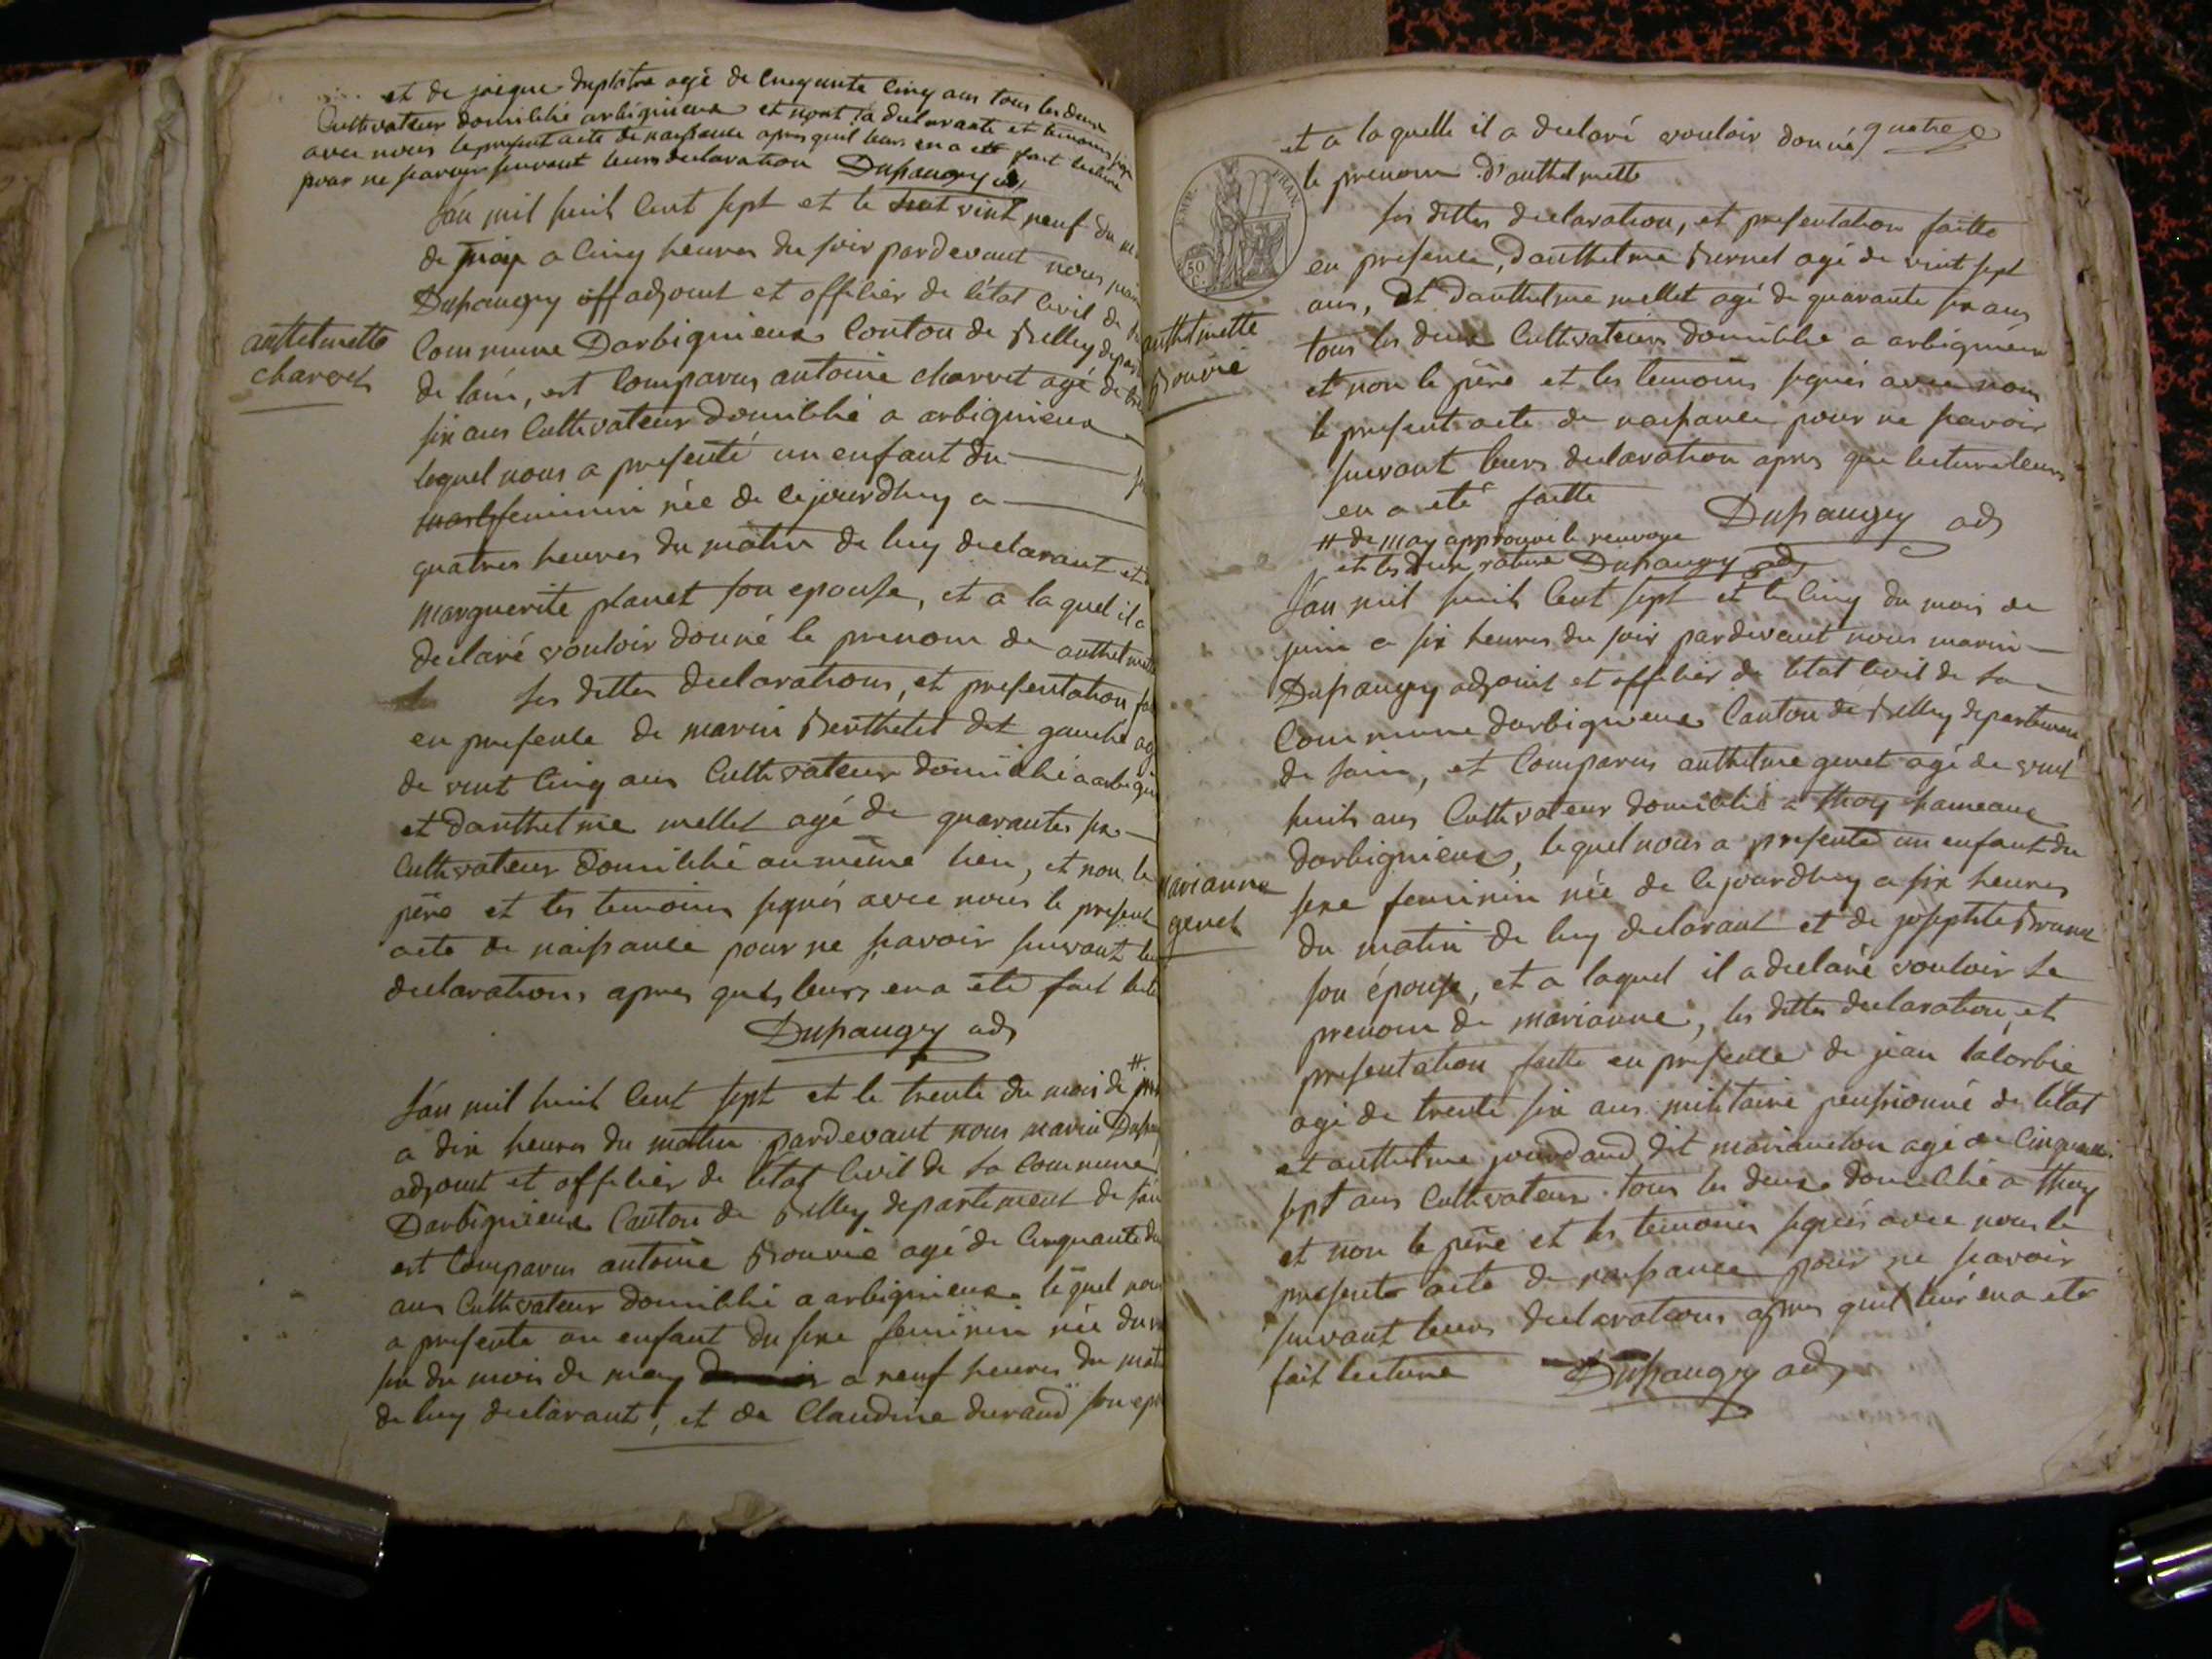 et de jacque duplatre agé de cinquante cinq ans tous les deux
Cultivateur domicilié arbignieux et nont la declarante et temoins signé
avec nous le present acte de naissance apres quil leurs en a eté fait lecture
pour ne scavoir suivant leurs declaration Dupaugey adj
L'an mil huit Cent sept et le vint neuf du
de may a Cinq heures du soir pardevant nous
Dupaugey off adjoint et officier de létat Civil de
anthelmette
charvet
Commune Darbignieux Canton de Belley
de lain, est Comparus antoine charvet agé de
six ans Cultivateur domicilié a arbignieux
lequel nous a presenté un enfant du
feminin née de cejourdhuy a
quatres heures du matin de luy declarant et
marguerite planet son epouse, et a la quel il a
declaré vouloir donné le prenom de anthelmette
les dittes declarations, et presentation
en presence de marin Berthelet dit gauché
de vint Cinq ans Cultivateur domicilié a
et danthelme mellet agé de quarantes six
Cultivateur domicilié au même lieu, et non le
père et les temoins signés avec nous le present
acte de naissance pour ne scavoir suivant
declarations apres quils leurs en a été fait
Dupaugey adj
L'an mil huit Cent sept et le trente du mois de #
a dix heures du matin pardevant nous marin
adjoint et officier de létat Civil de la Commune
Darbignieux Canton de Belley departement de lain
est Comparus antoine Bouvié agé de Cinquante
ans Cultivateur domicilié a arbignieux lequel nous
a presente un enfant du sexe feminin née du
six du mois de may a neuf heures du
de luy declarant, et de Claudine durand son
quatre
et a laquelle il a declaré vouloir donné
le prenom d'anthelmette
EMP. FRAN.
50
C.
les dittes declaration, et presentation faitte
en presence, danthelme Burnet agé de vint sept
ans, Et danthelme mellet agé de quarante six ans
anthelmette
Bouvié
tous les deux Cultivateurs domicilié a arbignieux
et non le père et les temoins signés avec nous
le present acte de naissance pour ne scavoir
suivant leurs declaration apres que lecture leurs
en a eté faitte Dupaugey adj
# de may approuvé le renvoye
et les deux rature Dupaugey adj
L'an mil huit Cent sept et le Cinq du mois de
juin a six heures du soir pardevant nous marin
Dupaugey adjoint et officier de létat Civil de la
Commune darbignieux Canton de Belley departement
de lain, et Comparus anthelme genet agé de vint
huits ans Cultivateur domicilié a thoy hameaux
darbignieux, lequel nous a presenté un enfant du
marianne
genet
sexe feminin née de cejourdhuy a six heures
du matin de luy declarant et de josephte Brunet
son épouse, et a laquel il a declaré vouloir le
prenom de marianne, les dittes declaration, et
presentation faitte en presence de jean
agé de trente six ans militaire pensionné de létat
et anthelme jourdand dit marianeton agé de Cinquante
sept ans Cultivateur tous les deux domicilié a thoy
et non le père et les temoins signés avec nous le
present acte de naissance pour ne scavoir
suivant leurs declarations apres quil leur en a eté
fait lecture Dupaugey adj